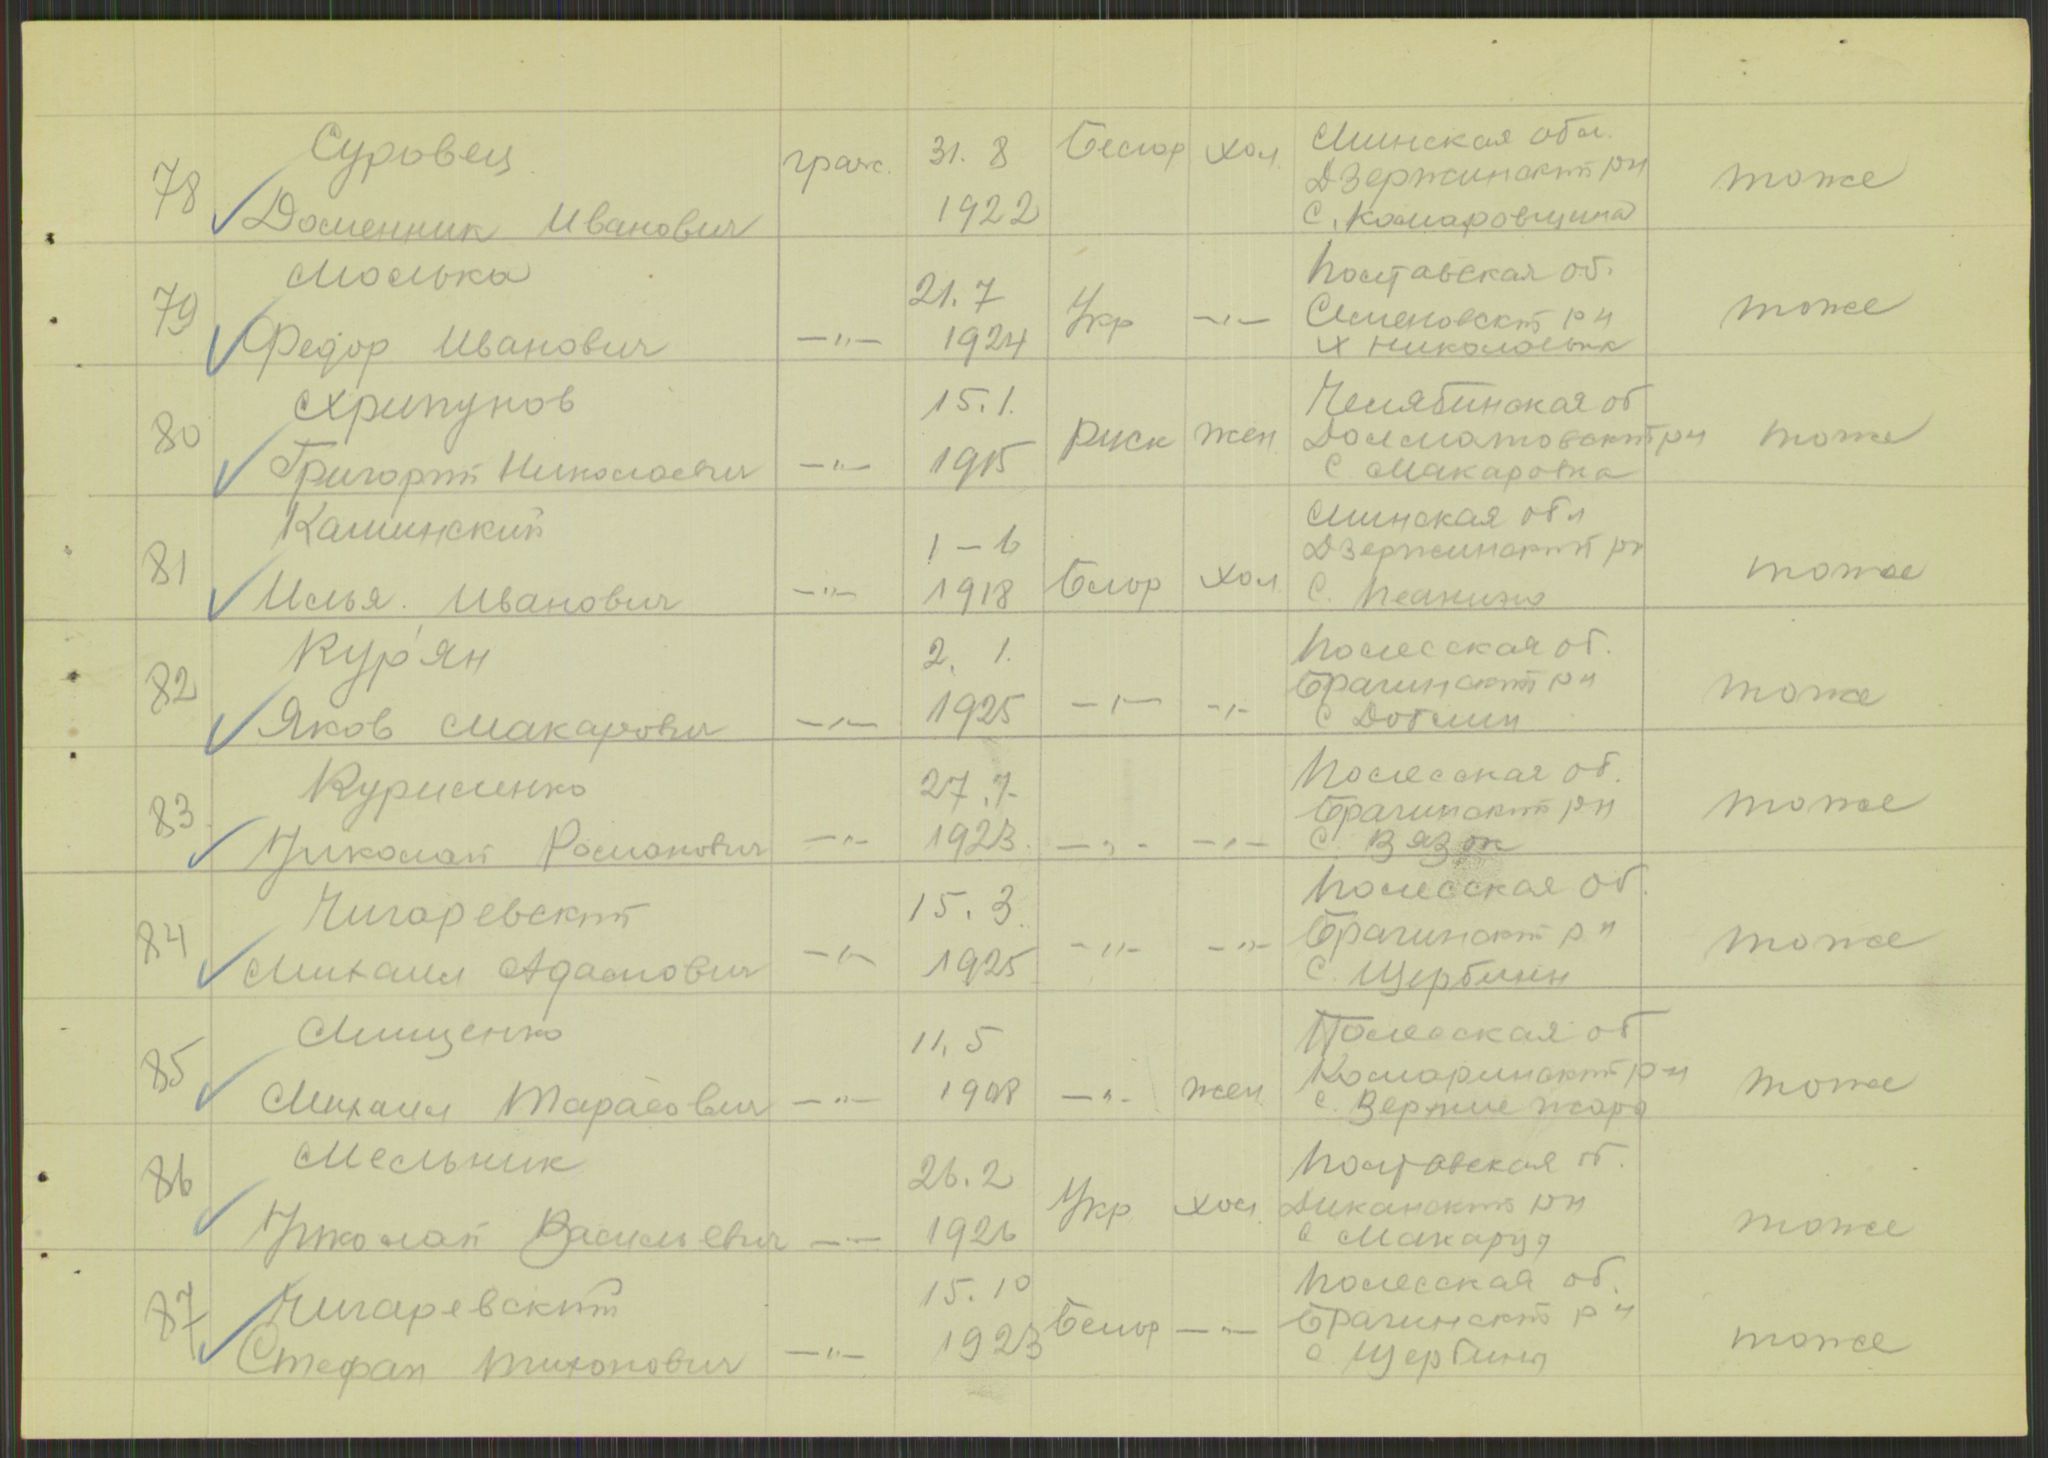 78 Суровец Доменник Иванович граж. 31. 8 1922 Белор хол. Минская обл. Дзержинский рн с. Комаровщина тоже
79 Федор Иванович —"— 21. 7 1924 Укр —"— Полтавская об. Семеновский рн х тоже
80 Хрипунов Григорий Николаевич —"— 15. 1. 1915 жен. Челябинская об Долматовский рн с. Макаровка тоже
81 Илья Иванович —"— 1 – 6 1918 Белор хол Минская обл Дзержинский рн с. тоже
82 Кур'ян Яков Макарович —"— 2. 1. 1925 —"— —"— Полесская об. Брагинский рн с тоже
83 Николай Романович —"— 27. 7. 1923. —"— —"— Полесская об. Брагинский рн с. Вязок тоже
84 Чигаревский Михаил Адамович —"— 15. 3. 1925 —"— —"— Полесская об. Брагинский рн с. тоже
85 Мищенко Михаил Тарасович —"— 11. 5 1908 —"— жен. Полесская об Комаринский рн с. тоже
86 Мельник Николай Васильевич —"— 26. 2 1926 Укр хол. Полтавская об. Диканский рн с тоже
87 Чигаревский Стефан Тихонович —"— 15. 10 1923 Белор —"— Полесская об. Брагинский рн с. тоже